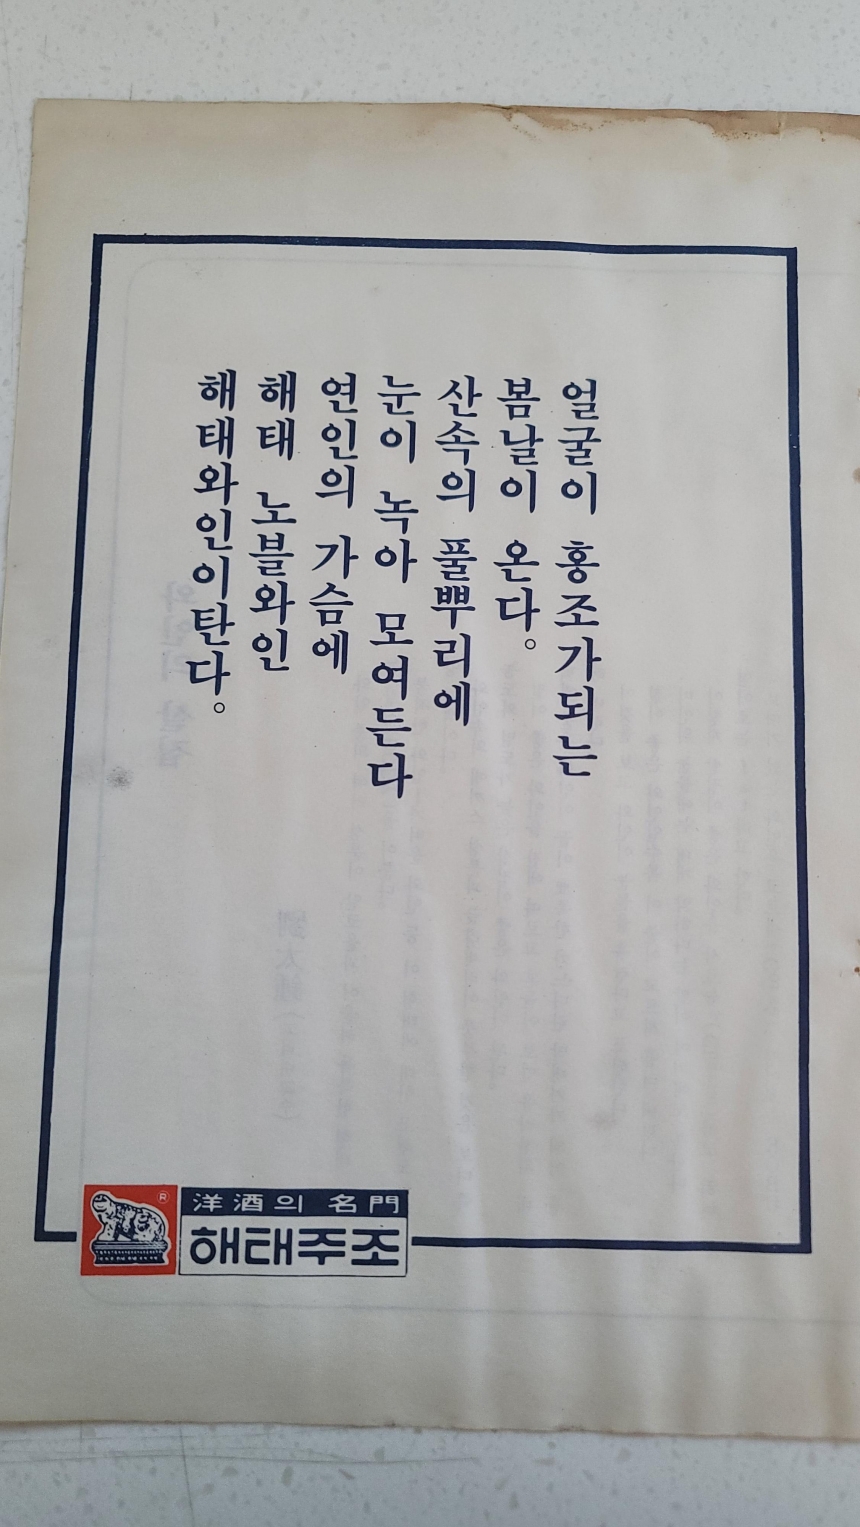 얼굴이 홍조가되는
봄날이 온다。
산속의 풀뿌리에
눈이 녹아 모여든다
연인의 가슴에
해태 노블와인
해태와인이탄다。
®
洋酒의 名門
해태주조